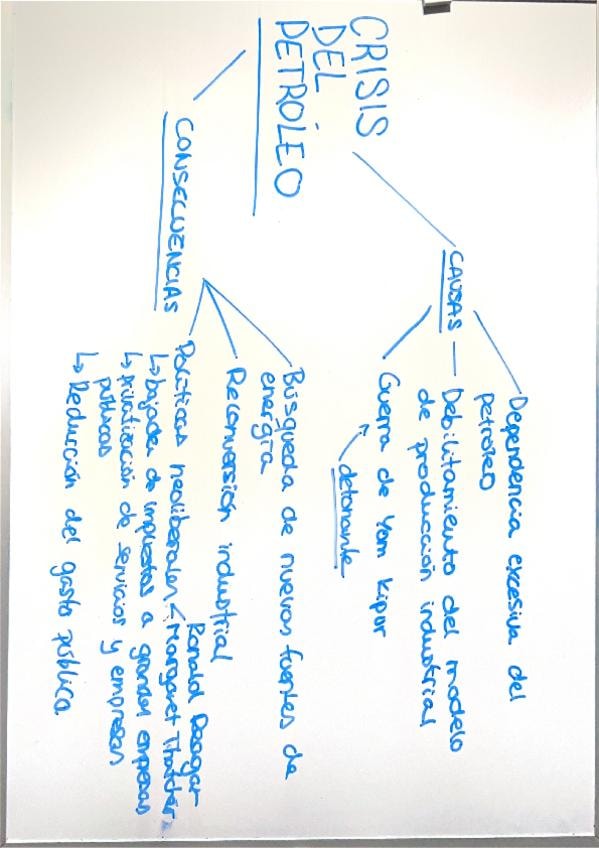 CRISIS
DEL
PETRÓLEO
CAUSAS
Dependencia excesiva del
petróleo
Debilitamiento del modelo
de producción industrial
Guerra de Yom Kipur
detonante
CONSECUENCIAS
Búsqueda de nuevas fuentes de
energía
Reconversión industrial
Políticas neoliberales < Ronald Reagan
Margaret Thatcher
↳ bajada de impuestos a grandes empresas
↳ privatización de servicios y empresas
públicas
↳ Reducción del gasto público.